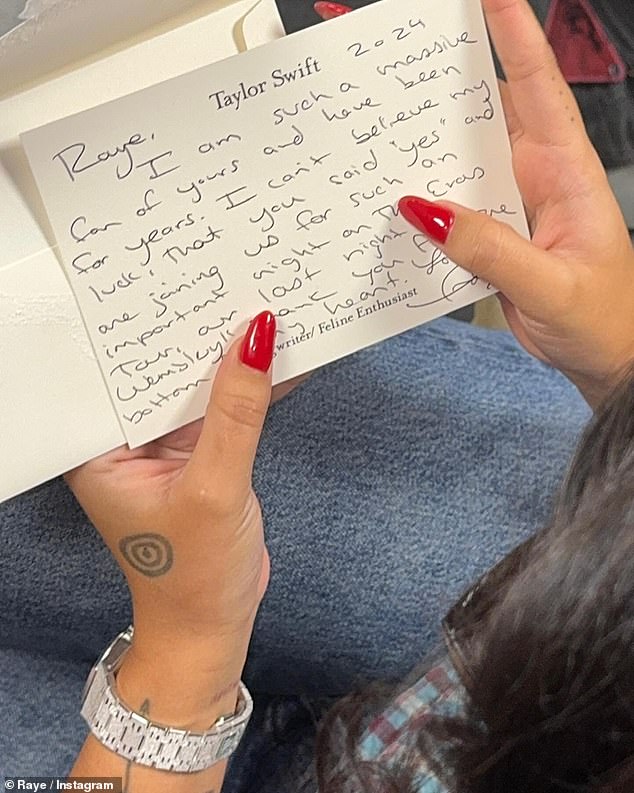 Taylor Swift
2024
Raye,
I am such a massive
fan of yours and have been
for years. I can't believe my
luck, that you said "yes" and
are joining us for such an
important night on The Eras
Tour, our last night
Wembley you
bottom my heart.
writer/ Feline Enthusiast
© Raye / Instagram